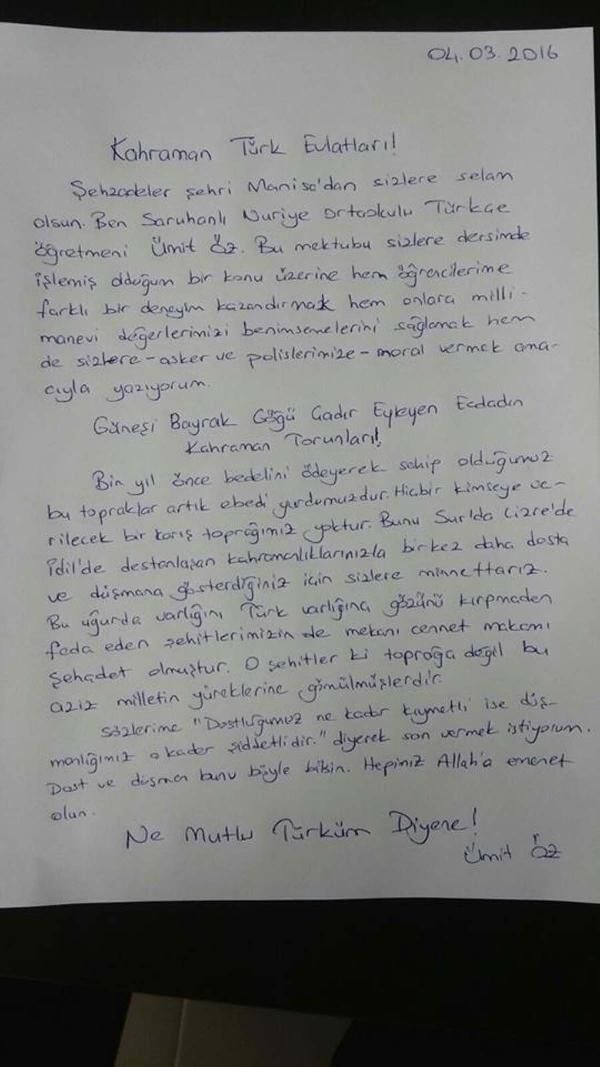 04.03.2016
Kahraman Türk Evlatları!
Şehzadeler şehri Manisa'dan sizlere selam
olsun. Ben Saruhanlı Nuriye Ortaokulu Türkçe
öğretmeni Ümit Öz. Bu mektubu sizlere dersimde
işlemiş olduğum bir konu üzerine hem öğrencilerime
farklı bir deneyim kazandırmak hem onlara milli-
manevi değerlerimizi benimsemelerini sağlamak hem
de sizlere-asker ve polislerimize-moral vermek ama-
cıyla yazıyorum.
Güneşi Bayrak Göğü Çadır Eyleyen Ecdadın
Kahraman Torunları!
Bin yıl önce bedelini ödeyerek sahip olduğumuz
bu topraklar artık ebedi yurdumuzdur. Hiçbir kimseye ve-
rilecek bir karış toprağımız yoktur. Bunu Sur'da Cizre'de
İdil'de destanlaşan kahramanlıklarınızla birkez daha dosta
ve düşmana gösterdiğiniz için sizlere minnettarız.
Bu uğurda varlığını Türk varlığına gözünü kırpmadan
feda eden şehitlerimizin de mekanı cennet makamı
şehadet olmuştur. O şehitler ki toprağa değil bu
aziz milletin yüreklerine gömülmüşlerdir.
Sözlerime "Dostluğumuz ne kadar kıymetli ise düş-
manlığımız o kadar şiddetlidir." diyerek son vermek istiyorum.
Dost ve düşman bunu böyle bilsin. Hepiniz Allah'a emanet
olun.
Ne Mutlu Türküm Diyene!
Ümit Öz